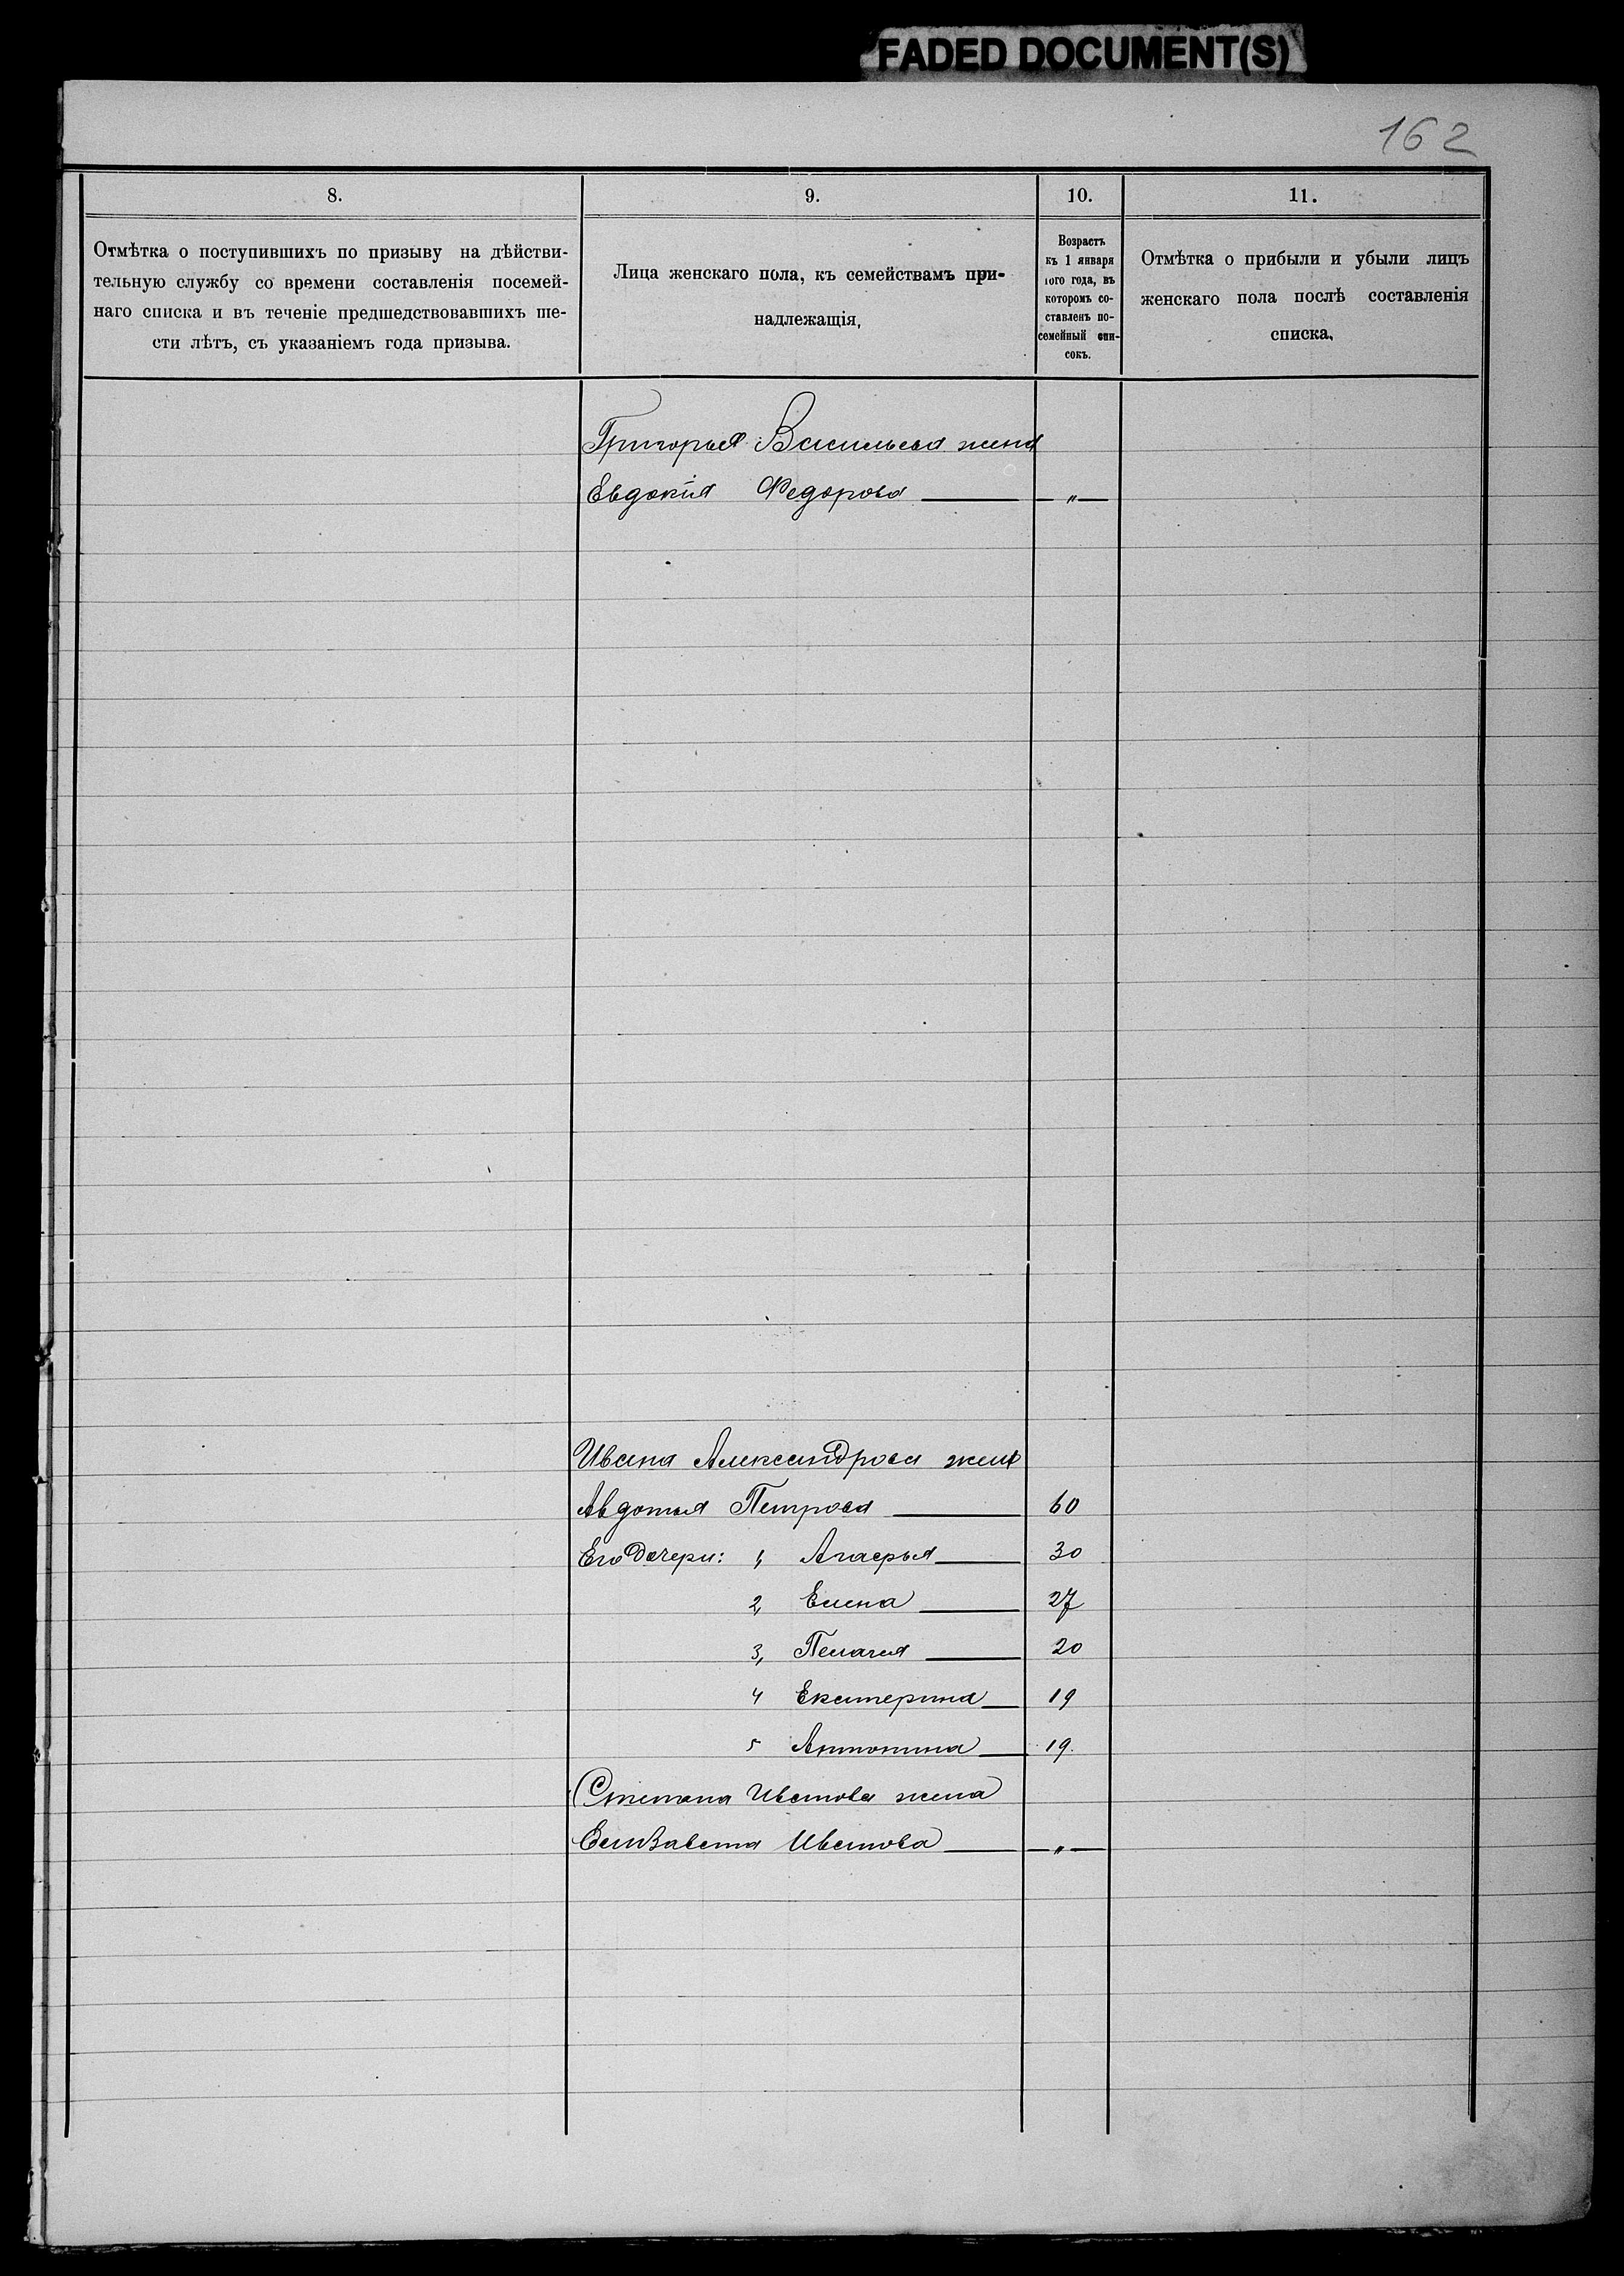 FADED DOCUMENT(S)
162
8.
9.
10.
11.
Отмѣтка о поступившихъ по призыву на дѣйстви-
тельную службу со времени составленія посемей-
наго списка и въ теченіе предшедствовавшихъ ше-
сти лѣтъ, съ указаніемъ года призыва.
Лица женскаго пола, къ семействамъ при-
надлежащія,
Возрастъ
къ 1 января
того года, въ
которомъ со-
ставленъ по-
семейный спи-
сокъ.
Отмѣтка о прибыли и убыли лицъ
женскаго пола послѣ составленія
списка,
Григорья Васильева жена
Евдокія Федорова — „ —
Ивана Александрова жена
Авдотья Петрова — 60
Его дочери: 1, Агаерья — 30
2, Елена — 27
3, Пелагея — 20
4 Екатерина — 19
5 Антонина — 19.
Степана Иванова жена
Елизавета Иванова — „ —